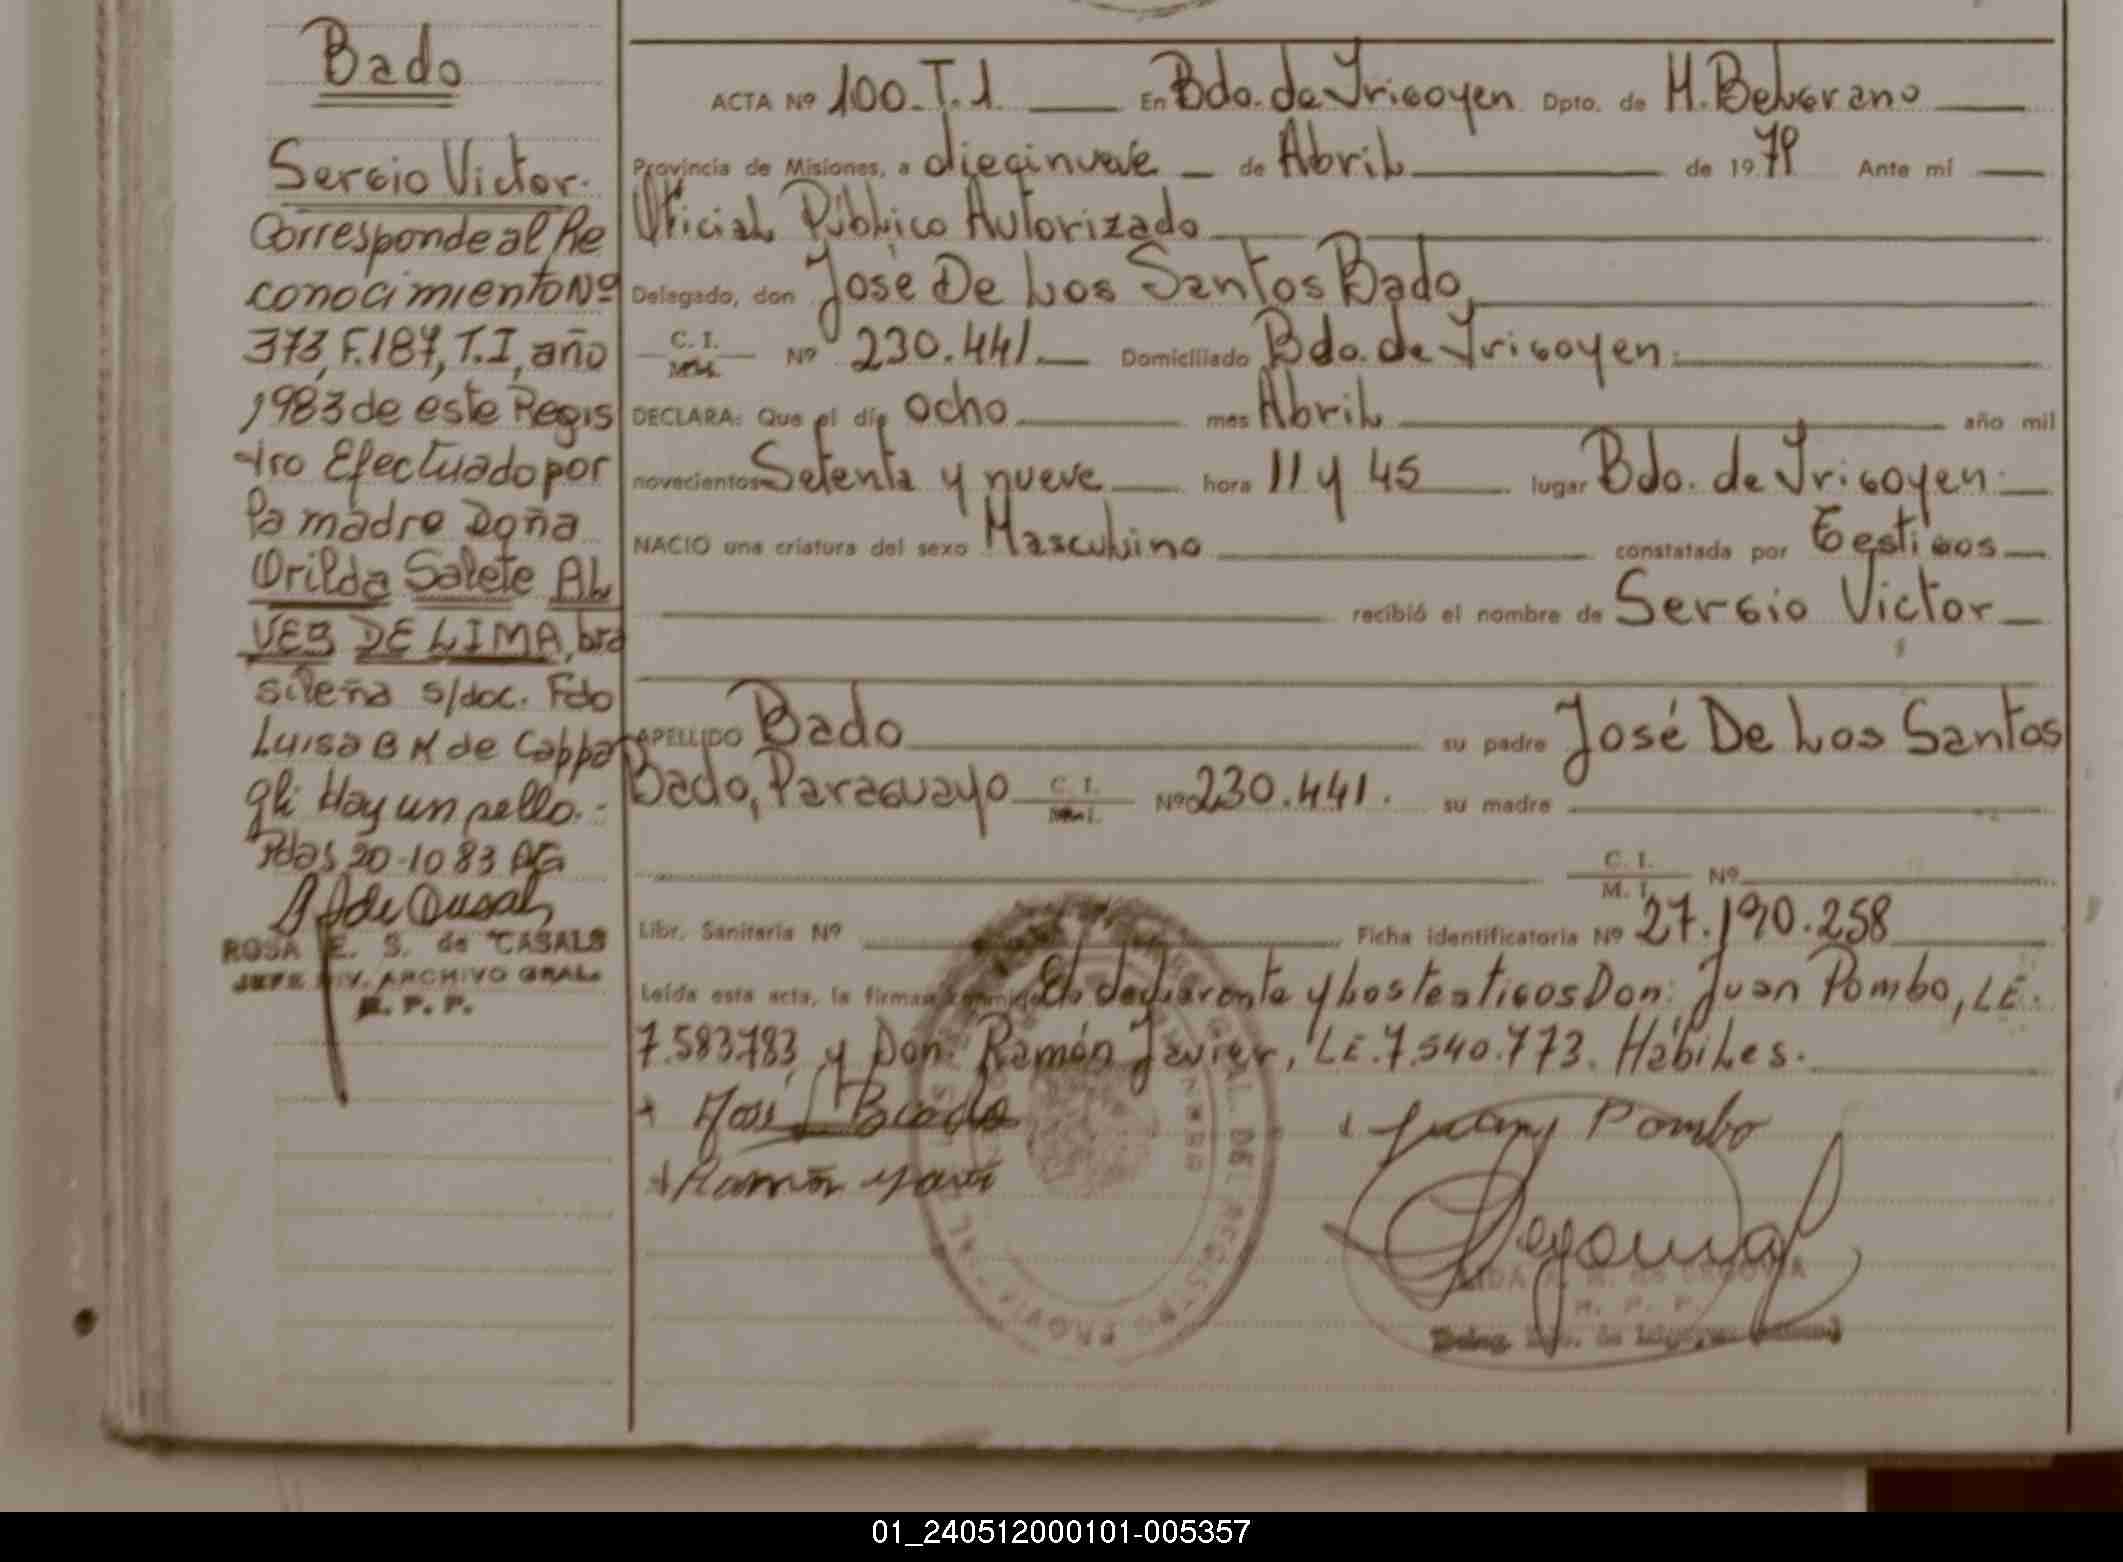 Bado
Sergio Victor.
Corresponde al Re
conocimiento Nº
373, F.187, T.I, año
1983 de este Regis
tro Efectuado por
la madre Doña
Orilda Salete AL
VES DE LIMA, bra
sileña s/doc. Fdo
Luisa B M de Cappa
gli Hay un sello.-
Pdas 20-10 83
ROSA E. S. de CASALS
JEFE DIV. ARCHIVO GRAL.
R. P. P.
ACTA Nº 100. T. 1 En Bdo. de Irigoyen Dpto. de M. Belgrano
Provincia de Misiones, a diecinueve de Abril de 1979 Ante mí
Oficial Público Autorizado
Delegado, don José De Los Santos Bado,
C. I. M. I. Nº 230.441. Domiciliado Bdo. de Irigoyen.
DECLARA: Que el día ocho mes Abril año mil
novecientos Setenta y nueve hora 11 y 45 lugar Bdo. de Irigoyen.
NACIO una criatura del sexo Masculino constatada por Testigos
recibió el nombre de Sergio Victor
APELLIDO Bado su padre José De Los Santos
Bado, Paraguayo C. I. M. I. Nº 230.441. su madre
C. I. M. I. Nº
Libr. Sanitaria Nº Ficha identificatoria Nº 27.190.258
Leída esta acta, la firman conmigo El declarante y Los testigos Don: Juan Pombo, LE.
7.583783 y Don: Ramón Javier, LE. 7.540.773. Hábiles.
+ José Bado + Juan Pombo
+ Ramón
R. P. P.
01_240512000101-005357